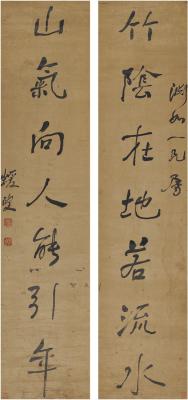 竹陰在地若流水
淵如一兄屬
山氣向人能引年
蝯叟